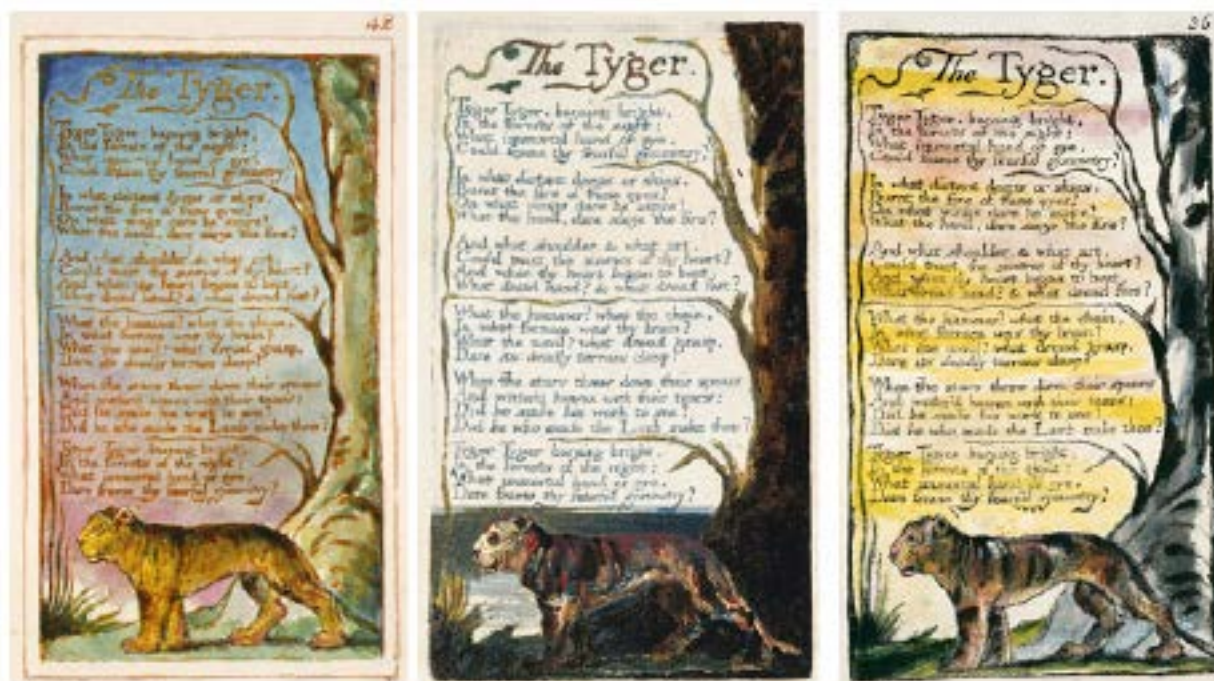 The Tyger.
Tyger Tyger, burning bright,
In the forests of the night;
What immortal hand or eye,
Could frame thy fearful symmetry
In what distant deeps or skies,
Burnt the fire of thine eyes?
On what wings dare he aspire?
What the hand, dare sieze the fire?
And what shoulder, & what art,
Could twist the sinews of thy heart?
And when thy heart began to beat,
What dread hand? & what dread feet?
What the hammer? what the chain,
In what furnace was thy brain?
What the anvil? what dread grasp,
When the stars threw down their spears
Did he smile his work to see?
Did he who made the Lamb make thee?
Tyger Tyger burning bright,
In the forests of the night:
What immortal hand or eye,
Dare frame thy fearful symmetry?
The Tyger.
Tyger Tyger, burning bright,
In the forests of the night;
What immortal hand or eye,
Could frame thy fearful symmetry?
In what distant deeps or skies,
Burnt the fire of thine eyes?
On what wings dare he aspire?
What the hand, dare sieze the fire?
And what shoulder, & what art,
Could twist the sinews of thy heart?
And when thy heart began to beat,
What dread hand? & what dread feet?
What the hammer? what the chain,
In what furnace was thy brain?
What the anvil? what dread grasp,
Dare its deadly terrors clasp!
When the stars threw down their spears
And water'd heaven with their tears:
Did he smile his work to see?
Did he who made the Lamb make thee?
Tyger Tyger burning bright,
In the forests of the night:
What immortal hand or eye,
Dare frame thy fearful symmetry?
The Tyger.
Tyger Tyger, burning bright,
In the forests of the night;
What immortal hand or eye,
Could frame thy fearful symmetry?
In what distant deeps or skies,
Burnt the fire of thine eyes?
On what wings dare he aspire?
What the hand, dare sieze the fire?
And what shoulder, & what art,
Could twist the sinews of thy heart?
And when thy heart began to beat,
What dread hand? & what dread feet?
What the hammer? what the chain,
In what furnace was thy brain?
What the anvil? what dread grasp,
Dare its deadly terrors clasp!
When the stars threw down their spears
And water'd heaven with their tears:
Did he smile his work to see?
Did he who made the Lamb make thee?
Tyger Tyger burning bright,
In the forests of the night:
What immortal hand or eye,
Dare frame thy fearful symmetry?